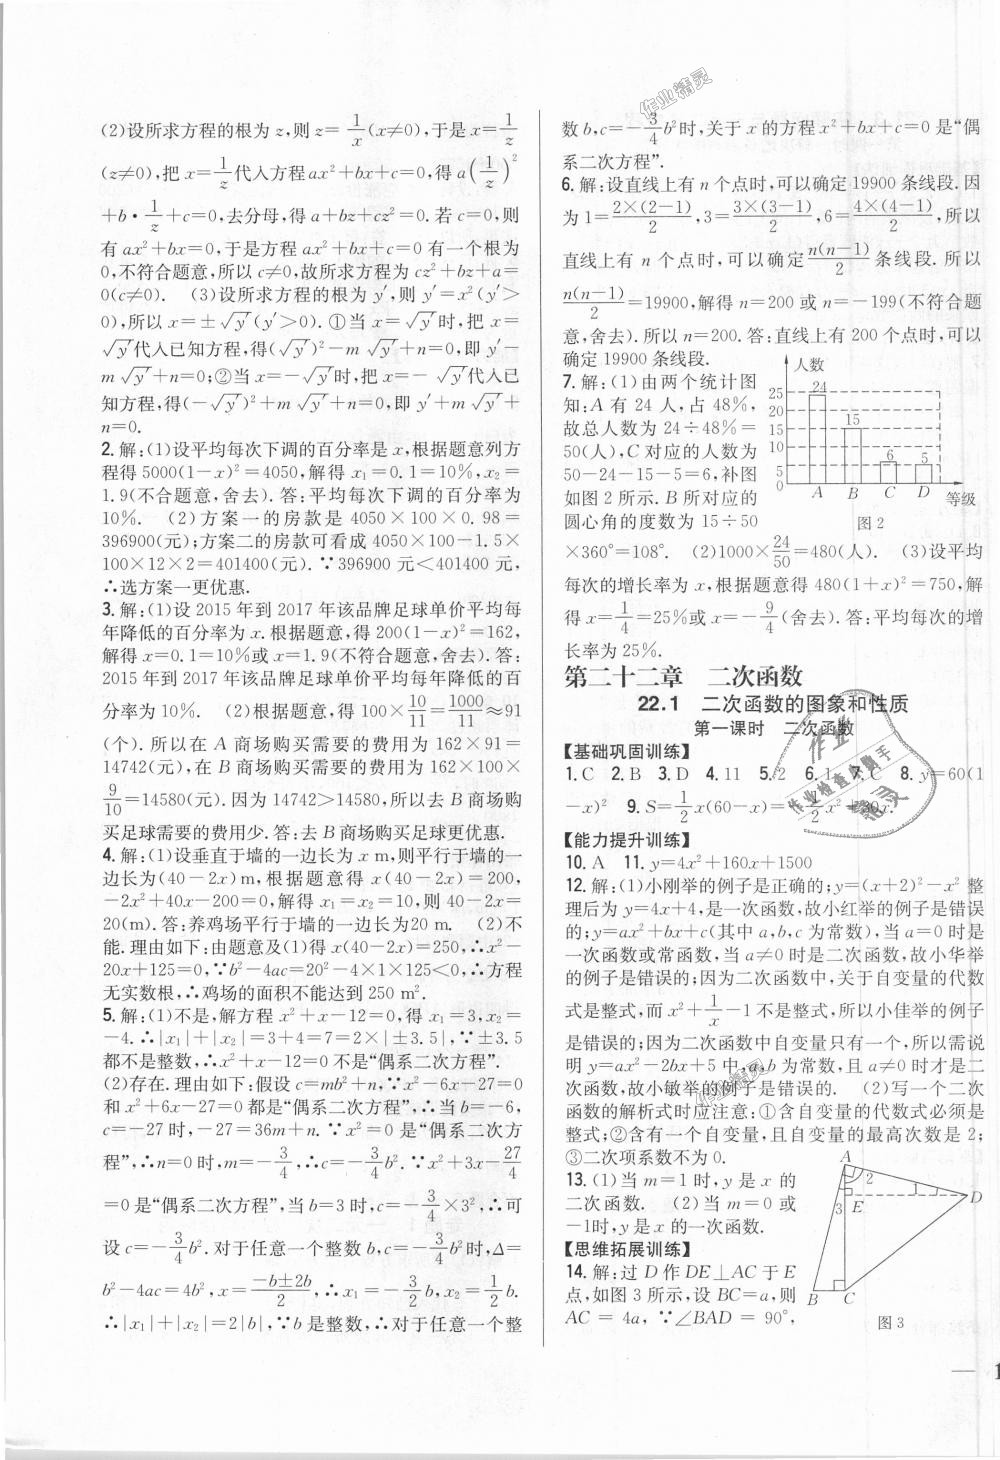 (2)设所求方程的根为 z,则 z=1/x(x≠0),于是 x=1/z
(z≠0),把 x=1/z代入方程 ax²+bx+c=0,得 a(1/z)²
+b·1/z+c=0,去分母,得 a+bz+cz²=0.若 c=0,则
有 ax²+bx=0,于是方程 ax²+bx+c=0 有一个根为
0,不符合题意,所以 c≠0,故所求方程为 cz²+bz+a=
0(c≠0). (3)设所求方程的根为 y′,则 y′=x²(y′>
0),所以 x=±√y′(y′>0).①当 x=√y′时,把 x=
√y′代入已知方程,得(√y′)²-m√y′+n=0,即 y′-
m√y′+n=0;②当 x=-√y′时,把 x=-√y′代入已
知方程,得(-√y′)²+m√y′+n=0,即 y′+m√y′+
n=0.
2.解:(1)设平均每次下调的百分率是 x,根据题意列方
程得 5000(1-x)²=4050,解得 x₁=0.1=10%,x₂=
1.9(不合题意,舍去).答:平均每次下调的百分率为
10%. (2)方案一的房款是 4050×100×0.98=
396900(元);方案二的房款可看成 4050×100-1.5×
100×12×2=401400(元).∵396900 元<401400 元,
∴选方案一更优惠.
3.解:(1)设 2015 年到 2017 年该品牌足球单价平均每
年降低的百分率为 x.根据题意,得 200(1-x)²=162,
解得 x=0.1=10%或 x=1.9(不符合题意,舍去).答:
2015 年到 2017 年该品牌足球单价平均每年降低的百
分率为 10%. (2)根据题意,得 100×10/11=1000/11≈91
(个).所以在 A 商场购买需要的费用为 162×91=
14742(元),在 B 商场购买需要的费用为 162×100×
9/10=14580(元).因为 14742>14580,所以去 B 商场购
买足球需要的费用少.答:去 B 商场购买足球更优惠.
4.解:(1)设垂直于墙的一边长为 x m,则平行于墙的一
边长为(40-2x)m,根据题意,得 x(40-2x)=200,
-2x²+40x-200=0,解得 x₁=x₂=10,则 40-2x=
20(m).答:养鸡场平行于墙的一边长为20 m. (2)不
能.理由如下:由题意及(1)得 x(40-2x)=250,∴x²-
20x+125=0,∵b²-4ac=20²-4×1×125<0,∴方程
无实数根,∴鸡场的面积不能达到 250 m².
5.解:(1)不是,解方程 x²+x-12=0,得 x₁=3,x₂=
-4.∴|x₁|+|x₂|=3+4=7=2×|±3.5|,∵±3.5
都不是整数,∴x²+x-12=0 不是“偶系二次方程”.
(2)存在.理由如下:假设 c=mb²+n,∵x²-6x-27=0
和 x²+6x-27=0 都是“偶系二次方程”,∴当 b=-6,
c=-27 时,-27=36m+n.∵x²=0 是“偶系二次方
程”,∴n=0 时,m=-3/4,∴c=-3/4b².∵x²+3x-27/4
=0 是“偶系二次方程”,当 b=3 时,c=-3/4×3²,∴可
设 c=-3/4b².对于任意一个整数 b,c=-3/4b²时,Δ=
b²-4ac=4b²,x=(-b±2b)/2,∴x₁=-3/2b,x₂=1/2b.
∴|x₁|+|x₂|=2|b|,∵b 是整数,∴对于任意一个整
数 b,c=-3/4b²时,关于 x 的方程 x²+bx+c=0 是“偶
系二次方程”.
6.解:设直线上有 n 个点时,可以确定 19900 条线段.因
为 1=2×(2-1)/2,3=3×(3-1)/2,6=4×(4-1)/2,所以
直线上有 n 个点时,可以确定n(n-1)/2条线段.所以
n(n-1)/2=19900,解得 n=200 或 n=-199(不符合题
意,舍去).所以 n=200.答:直线上有 200 个点时,可以
确定 19900 条线段.
7.解:(1)由两个统计图
知:A 有 24 人,占 48%,
故总人数为 24÷48%=
50(人),C 对应的人数为
50-24-15-5=6,补图
如图 2 所示.B 所对应的
圆心角的度数为 15÷50
人数
25
20
15
10
5
0
24
15
6
5
A B C D 等级
图 2
×360°=108°. (2)1000×24/50=480(人). (3)设平均
每次的增长率为 x,根据题意得 480(1+x)²=750,解
得 x=1/4=25%或 x=-9/4(舍去).答:平均每次的增
长率为 25%.
第二十二章 二次函数
22.1 二次函数的图象和性质
第一课时 二次函数
【基础巩固训练】
1.C 2.B 3.D 4.11 5. 2 6. 7.C 8.y=60(1
-x)² 9.S=1/2x(60-x)= x²+30x.
【能力提升训练】
10.A 11.y=4x²+160x+1500
12.解:(1)小刚举的例子是正确的;y=(x+2)²-x² 整
理后为 y=4x+4,是一次函数,故小红举的例子是错误
的;y=ax²+bx+c(其中 a,b,c 为常数),当 a=0 时是
一次函数或常函数,当 a≠0 时是二次函数,故小华举
的例子是错误的;因为二次函数中,关于自变量的代数
式是整式,而 x²+1/x-1 不是整式,所以小佳举的例子
是错误的;因为二次函数中自变量只有一个,所以需说
明 y=ax²-2bx+5 中,a,b 为常数,且 a≠0 时才是二
次函数,故小敏举的例子是错误的. (2)写一个二次
函数的解析式时应注意:①含自变量的代数式必须是
整式;②含有一个自变量,且自变量的最高次数是 2;
③二次项系数不为 0.
13.(1)当 m=1 时,y 是 x 的
二次函数. (2)当 m=0 或
-1时,y 是 x 的一次函数.
【思维拓展训练】
14.解:过 D 作 DE⊥AC 于 E
点,如图 3 所示,设 BC=a,则
AC = 4a, ∵∠BAD = 90°,
A
2
1
D
3 E
B C
图 3
作业精灵
作业
作业检查小助手
精灵
作业精灵
— 1